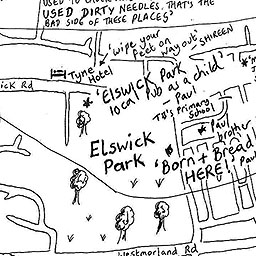 USED DIRTY NEEDLES. THAT'S THE
BAD SIDE OF THESE PLACES'
'wipe your
feet on
way out'
SHIREEN
Tyne
Hotel
ick Rd
'Elswick Park
local Pub as a child'
- Paul
School
Elswick
Park
Paul
brother
'Born + Bread
HERE!'
Paul
Westmorland Rd